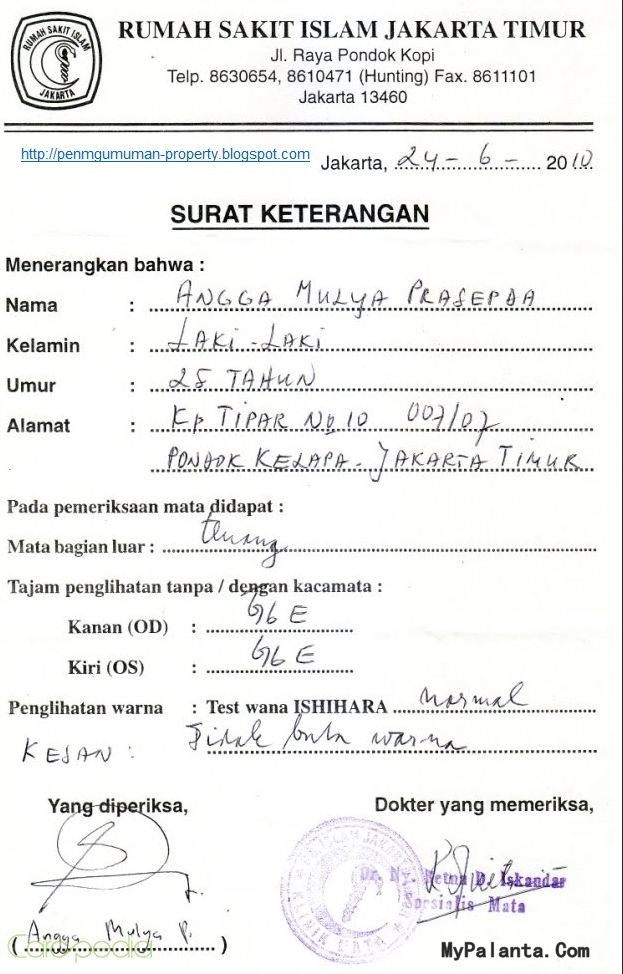 RUMAH SAKIT ISLAM
JAKARTA
RUMAH SAKIT ISLAM JAKARTA TIMUR
Jl. Raya Pondok Kopi
Telp. 8630654, 8610471 (Hunting) Fax. 8611101
Jakarta 13460
http://penmgumuman-property.blogspot.com
Jakarta, 24 - 6 - 2010
SURAT KETERANGAN
Menerangkan bahwa :
Nama : ANGGA MULYA PRASEPDA
Kelamin : LAKi-LAKi
Umur : 25 TAHUN
Alamat : Kp TIPAR No 10 007/07
PONDOK KELAPA - JAKARTA TIMUR
Pada pemeriksaan mata didapat :
Mata bagian luar : tenang
Tajam penglihatan tanpa / dengan kacamata :
Kanan (OD) : 6/6 E
Kiri (OS) : 6/6 E
Penglihatan warna : Test wana ISHIHARA normal
KESAN : Tidak buta warna
Yang diperiksa, Dokter yang memeriksa,
Dr. Ny. Retna D. Iskandar
Spesialis Mata
KLINIK MATA
( Angga Mulya P. )
Carapedia
MyPalanta.Com